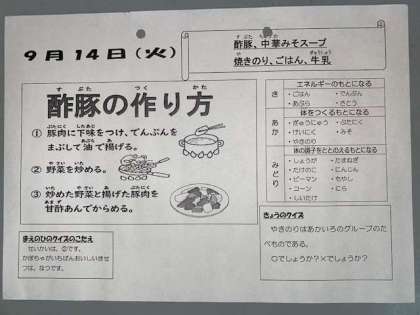 9月14日(火)
酢豚、中華みそスープ
焼きのり、ごはん、牛乳
酢豚の作り方
① 豚肉に下味をつけ、でんぷんを
まぶして油で揚げる。
② 野菜を炒める。
③ 炒めた野菜と揚げた豚肉を
甘酢あんでからめる。
き
エネルギーのもとになる
・ごはん ・でんぷん
・あぶら ・さとう
あか
体をつくるもとになる
・ぎゅうにゅう ・ぶたにく
・けいにく ・みそ
・やきのり
みどり
体の調子をととのえるもとになる
・しょうが ・たまねぎ
・たけのこ ・にんじん
・ピーマン ・もやし
・コーン ・にら
・しいたけ
まえのひのクイズのこたえ
せいかいは、②です。
かぼちゃがいちばんおいしいきせ
つは、なつです。
きょうのクイズ
やきのりはあかいろのグループのた
べものである。
○でしょうか?×でしょうか?